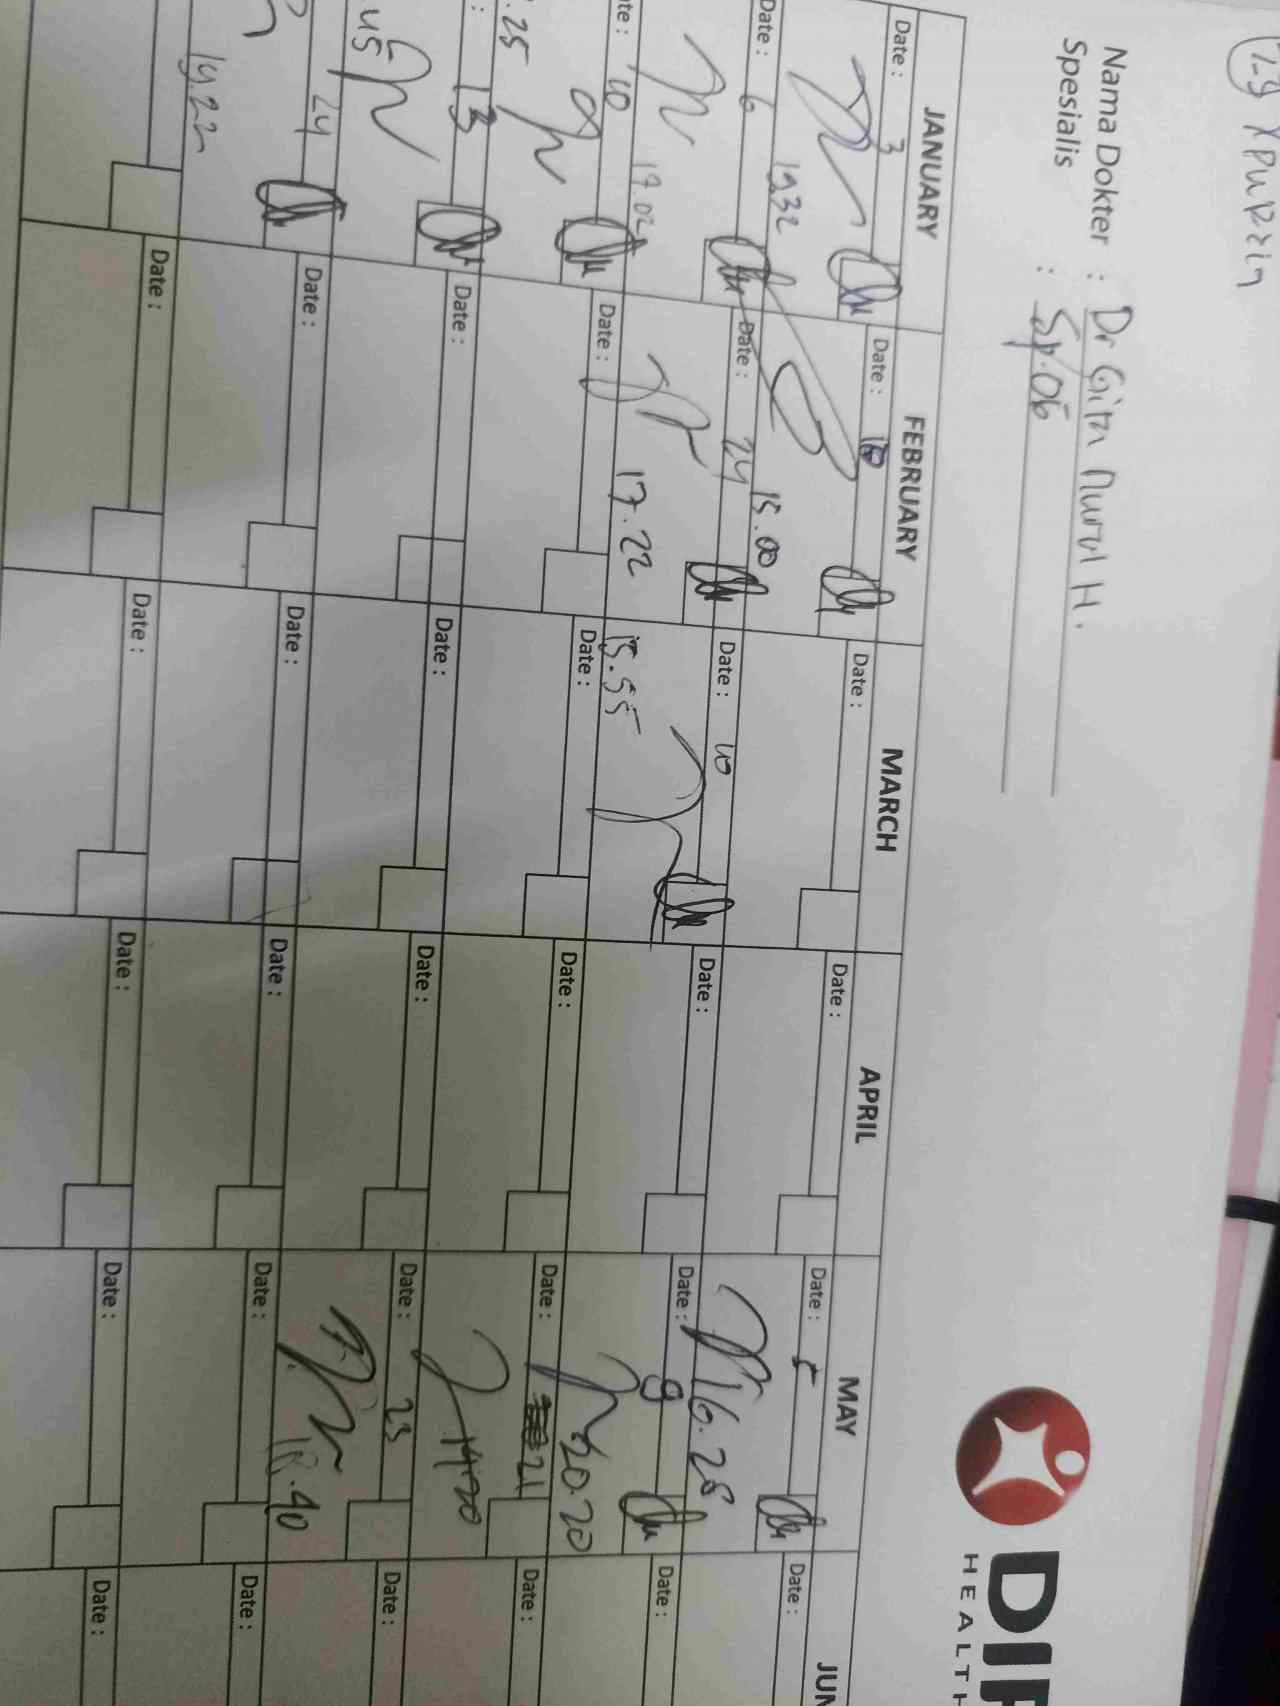 Nama Dokter : Dr Gita Nurul H.
Spesialis : Sp.OG
DI
HEALTH
JANUARY FEBRUARY MARCH APRIL MAY JUN
Date : 3 Date : 18 Date : Date : Date : 5 Date :
19.32 15.00 16.28
Date : 6 Date : 24 Date : 10 Date : Date : 9 Date :
19.02 17.22 15.55 20.20
ate : 10 Date : Date : Date : Date : 21 Date :
.25 14.20
: 13 Date : Date : Date : Date : 23 Date :
.45 18.40
24 Date : Date : Date : Date : Date :
19.22
Date : Date : Date : Date : Date :